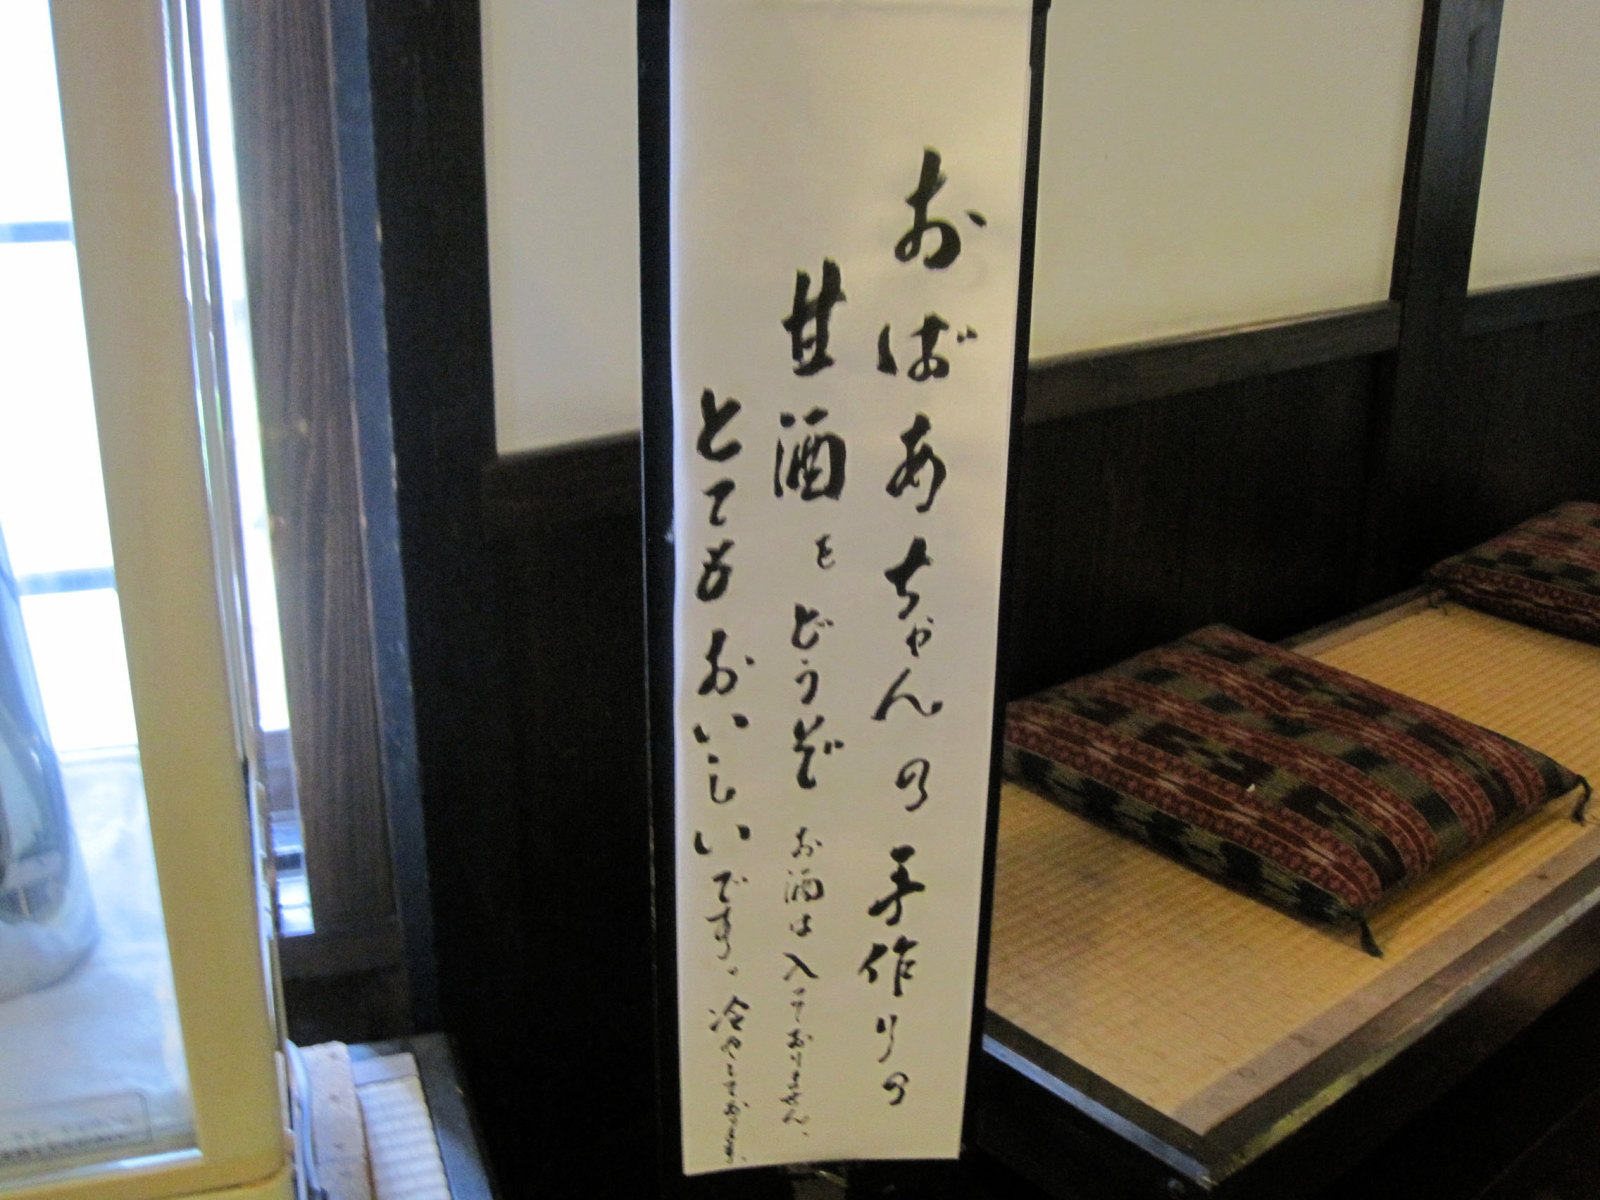 おばあちゃんの手作りの
甘酒をどうぞ お酒は入っておりません、
とてもおいしいです。冷やしてあります。